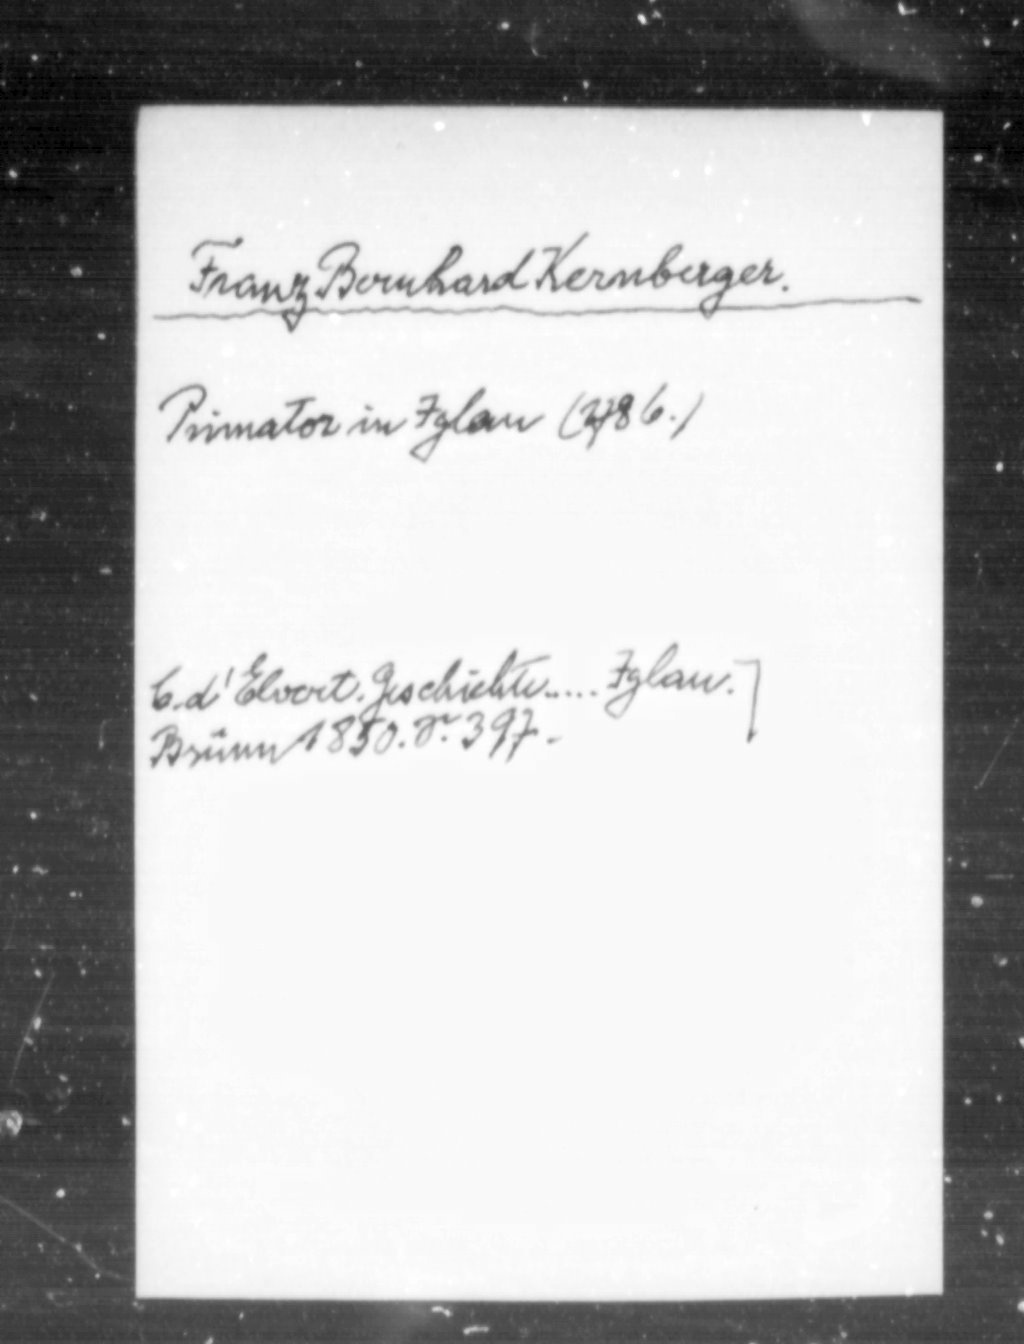 Franz Bernhard Kernberger.
Primator in Iglau (1786.)
C. d'Elvert. Geschichte..... Iglau.]
Brünn 1850. S. 397.-